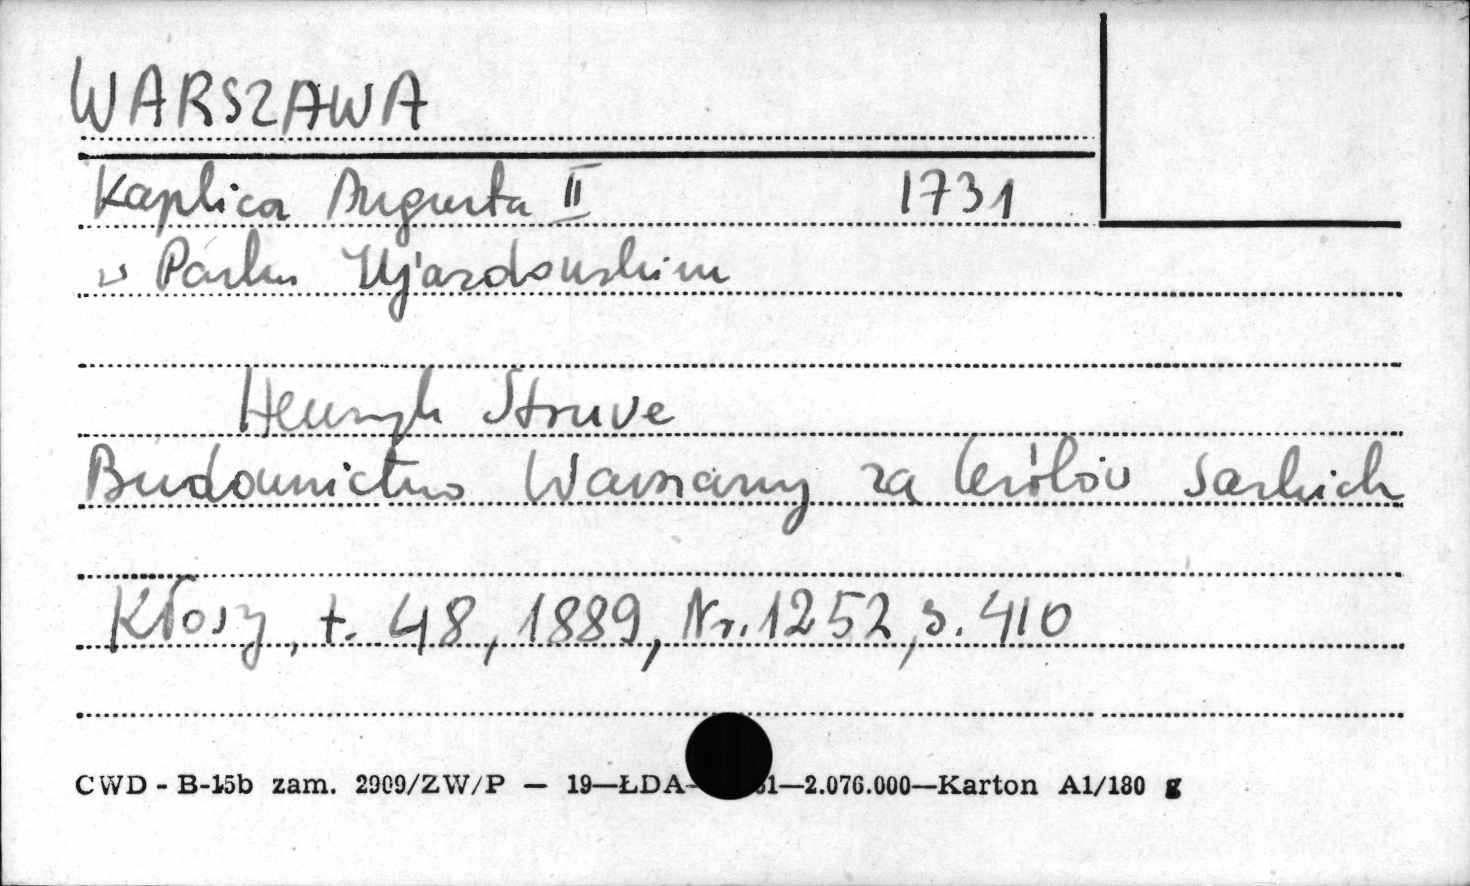 WARSZAWA
Kaplica Augusta II 1731
w Parku Ujazdowskim
Henryk Struve
Budownictwo Warszawy za królów saskich
Kłosy, t. 48, 1889, Nr. 1252, s. 410
CWD - B-15b zam. 2909/ZW/P — 19—ŁDA- 61—2.076.000—Karton A1/180 g